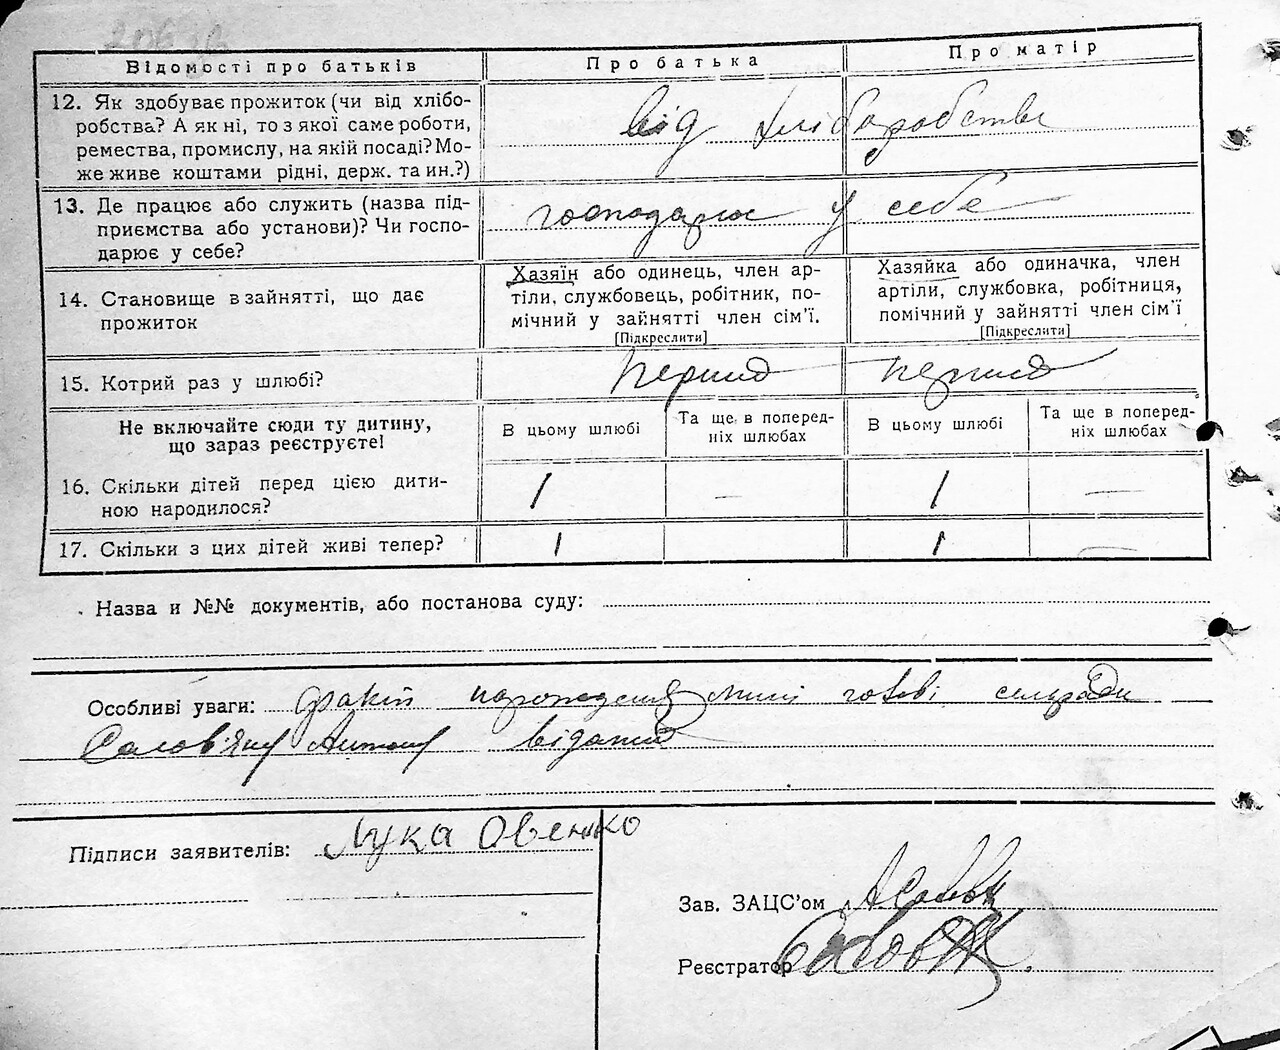 Відомості про батьків Про батька Про матір
12. Як здобуває прожиток (чи від хлібо-
робства? А як ні, то з якої саме роботи,
ремества, промислу, на якій посаді? Мо-
же живе коштами рідні, держ. та ин.?)
від хліборобства
13. Де працює або служить (назва під-
приємства або установи)? Чи госпо-
дарює у себе?
господарює у себе
14. Становище в зайнятті, що дає
прожиток
Хазяїн або одинець, член ар-
тіли, службовець, робітник, по-
мічний у зайнятті член сім'ї.
[Підкреслити]
Хазяйка або одиначка, член
артіли, службовка, робітниця,
помічний у зайнятті член сім'ї
[Підкреслити]
15. Котрий раз у шлюбі? перший перший
Не включайте сюди ту дитину,
що зараз реєструєте!
В цьому шлюбі
Та ще в поперед-
ніх шлюбах
В цьому шлюбі
Та ще в поперед-
ніх шлюбах
16. Скільки дітей перед цією дити-
ною народилося?
1 — 1 —
17. Скільки з цих дітей живі тепер? 1 1 —
Назва и №№ документів, або постанова суду:
Особливі уваги: голові сельради
Солов'яну Антону
Підписи заявителів: Лука Овенко
Зав. ЗАЦС'ом
Реєстратор